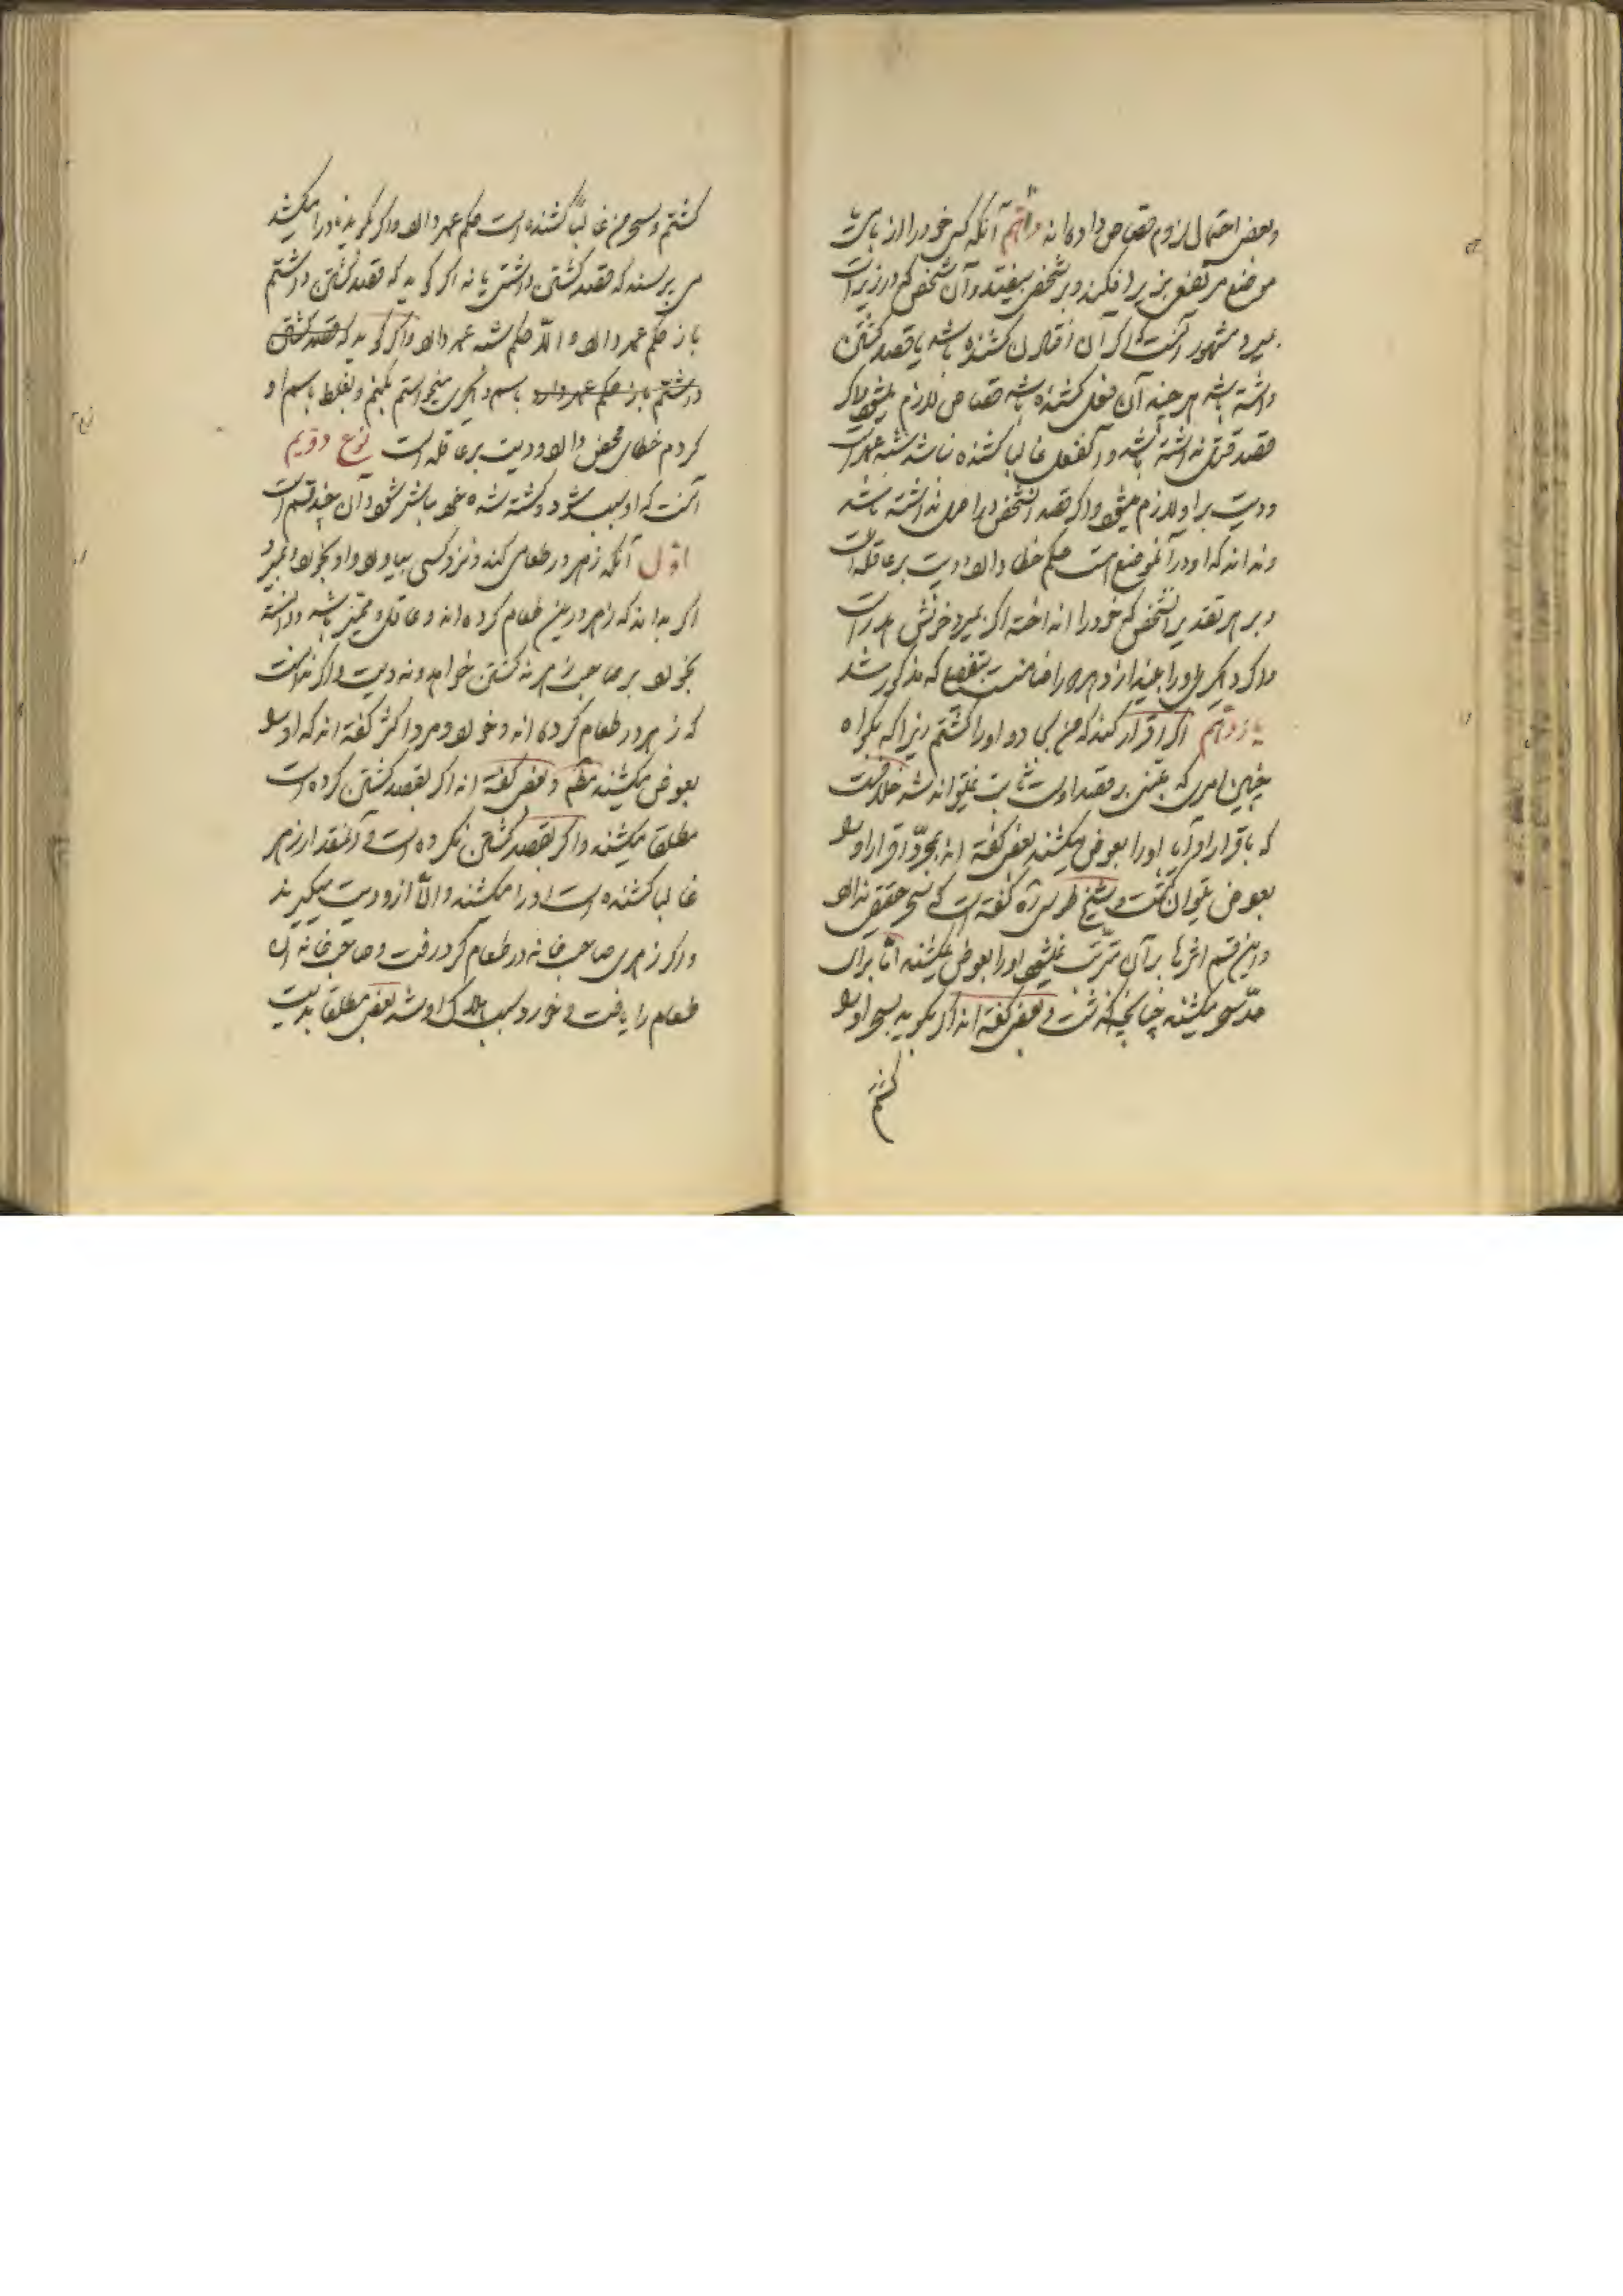 وبعضی احتمال لزوم قصاص داده‌اند دهم آنکه کسی خود را از بای
موضع مرتفعی بزیر افکند و بر شخصی بیفتد و آن شخص که در زیر است
بمیرد مشهور آنست که اگر آن افتادن کشنده باشد یا قصد کشتن
داشته باشد هر چند آن فعل کشنده نباشد قصاص لازم میشود و اگر
قصد قتل نداشته باشد و آنفعل غالبا کشنده نباشد شبیه عمد است
و دیت بر او لازم میشود و اگر قصد آنشخص را اصل نداشته باشد
و نداند که او در آنموضع است حکم خطا دارد و دیت بر عاقله است
و بر هر تقدیر آنشخص که خود را انداخته اگر بمیرد خونش هدر است
و اگر دیگری او را بیندازد هر دو را ضامنست بتفصیلی که مذکور شد
یازدهم اگر اقرار کند که من بجادو او را کشتم زیرا که بگواه
چنین امری که مبنی بر قصد اوست ثابت نمیتواند شد خلافست
که باقرار او آیا او را بعوض میکشند بعضی گفته اند بمجرد اقرار او را
بعوض میتوان کشت و شیخ طوسی ره گفته است که سحر حقیقتی ندارد
و این قسم اثرها بر آن مترتب نمیشود او را بعوض نمیکشند اما برای
حد سحر میکشند چنانچه گذشت و بعضی گفته اند اگر بگوید بسحر او را
کشتم
کشتم و سحر من غالبا کشنده است حکم عمد دارد و اگر بگوید نادرا میکشد
می پرسند که قصد کشتن داشتی یا نه اگر گوید که قصد کشتن داشتم
باز حکم عمد دارد و الا حکم شبه عمد دارد و اگر گوید که قصد کشتن
داشتم باز حکم عمد دارد باسم دیگری میخواستم بکنم و بغلط باسم او
کردم خطای محض دارد و دیت بر عاقله است نوع دویم
آنست که او سبب شود و کشته شده خود مباشر شود و آن چند قسم است
اول آنکه زهر در طعامی کند و نزد کسی بیاورد و او بخورد و بمیرد
اگر بداند که زهر در این طعام کرده اند و عاقل و ممیز باشد و دانسته
بخورد بر صاحب زهر نه کشتن خواهد و نه دیت و اگر ندانست
که زهر در طعام کرده اند و خورد و مرد اکثر گفته اند که او را
بعوض میکشند مطلقا و بعضی گفته اند اگر بقصد کشتن کرده است
مطلقا میکشند و اگر بقصد کشتن نکرده است و آنمقدار زهر
غالبا کشنده است او را میکشند و الا از او دیت میگیرند
و اگر زهری صاحب خانه در طعام کرد و رفت و صاحب خانه آن
طعام را یافت و خورد و سبب هلاک او شد بعضی مطلقا بدیت